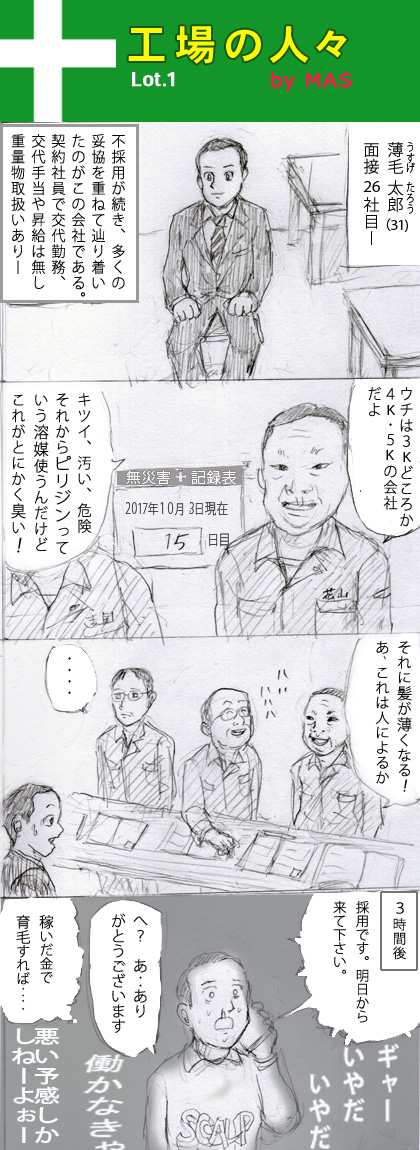 工場の人々
Lot.1
by MAS
うすげ たろう
薄毛 太郎(31)
面接 26社目ー
不採用が続き、多くの
妥協を重ねて辿り着い
たのがこの会社である。
契約社員で交代勤務、
交代手当や昇給は無し
重量物取扱いありー
ウチは3Kどころか
4K・5Kの会社
だよ
無災害+記録表
2017年10月 3日現在
15 日目
花山
キツイ、汚い、危険
それからピリジンって
いう溶媒使うんだけど
これがとにかく臭い!
吉田
それに髪が薄くなる!
あ、これは人によるか
・・・・
3時間後
採用です。明日から
来て下さい。
へ? あ‥あり
がとうございます
稼いだ金で
育毛すれば‥‥
SCALP
ギャー
いやだ
いやだ
働かなきゃ
悪い予感しか
しねーよぉー